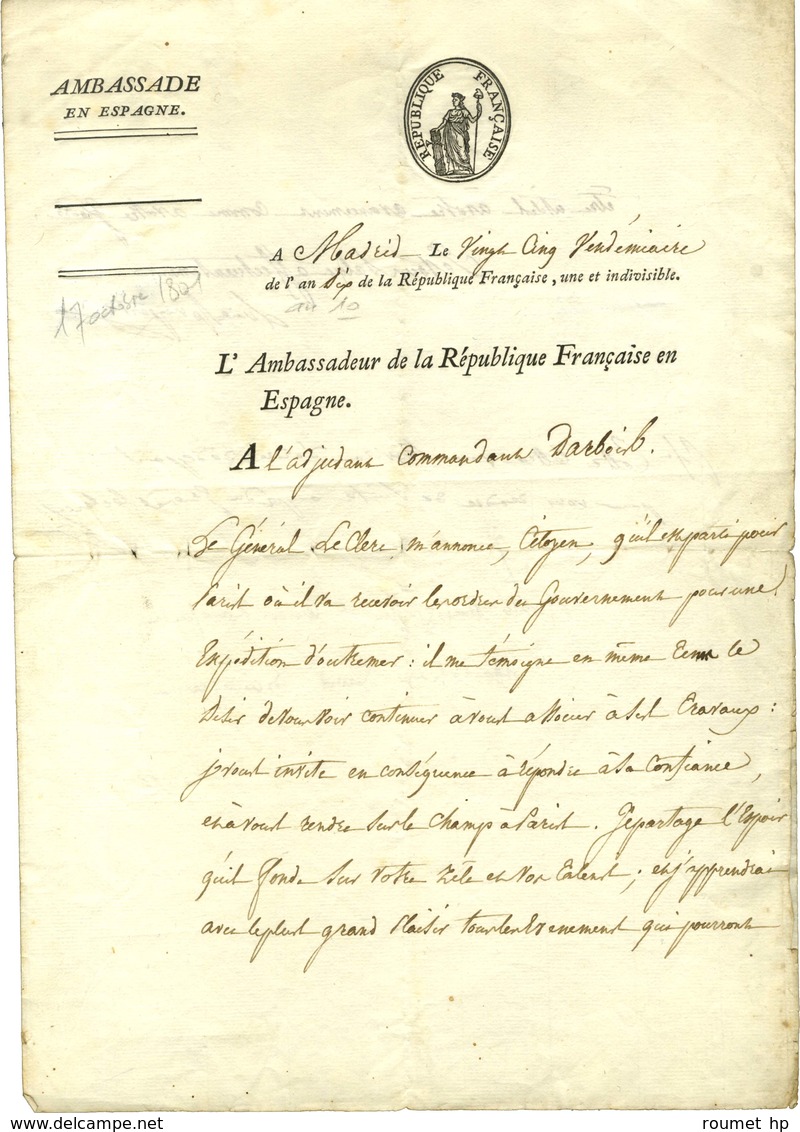 AMBASSADE
EN ESPAGNE.
RÉPUBLIQUE FRANÇAISE
A Madrid Le Vingt Cinq Vendémiaire
de l'an Dix de la République Française, une et indivisible.
17 octobre 1801
an 10
L'Ambassadeur de la République Française en
Espagne.
A l'adjudant Commandant Darbois.
Le Général LeClerc m'annonce, Citoyen, qu'il est parti pour
Paris où il va recevoir les ordres du Gouvernement pour une
Expédition d'outremer : il me témoigne en même tems le
Desir de vous voir continuer à vous associer à ses travaux :
je vous invite en conséquence à répondre à sa confiance,
et à vous rendre sur le champ à Paris. Je partage l'Espoir
qu'il fonde sur votre zèle et vos talens ; et j'apprendrai
avec le plus grand plaisir tous les Evenemens qui pourront
roumet hp